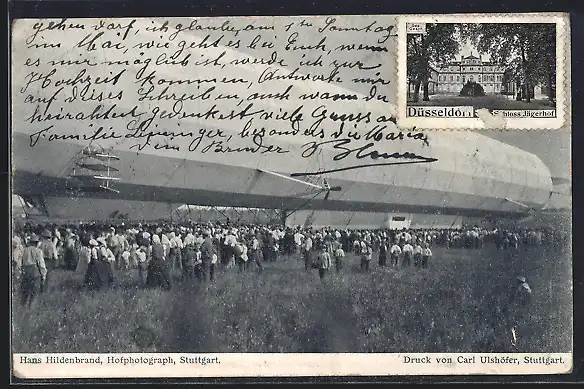 gehen darf, ich glaube, am 1te Sonntag
im Mai, wie geht es bei Euch, wenn
es mir möglich ist, werde ich zur
Hochzeit kommen, Antworte mir
auf dieses Schreiben, auch wann du
heirathest gedenkest, viele Gruss an
Familie besonders die Maria
dein Bruder
Düsseldorf Schloss Jägerhof
Hans Hildenbrand, Hofphotograph, Stuttgart.
Druck von Carl Ulshöfer, Stuttgart.